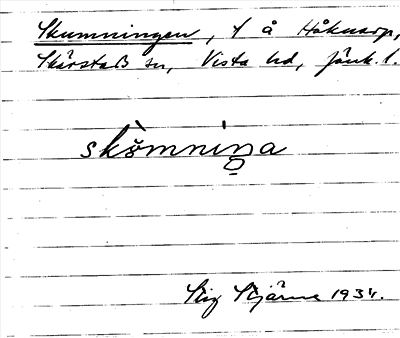 Skumningen, t å Håknarp,
Skärstads sn, Vista hd, Jönk. l.
skòmnìŋa
Stig Stjärne 1934.